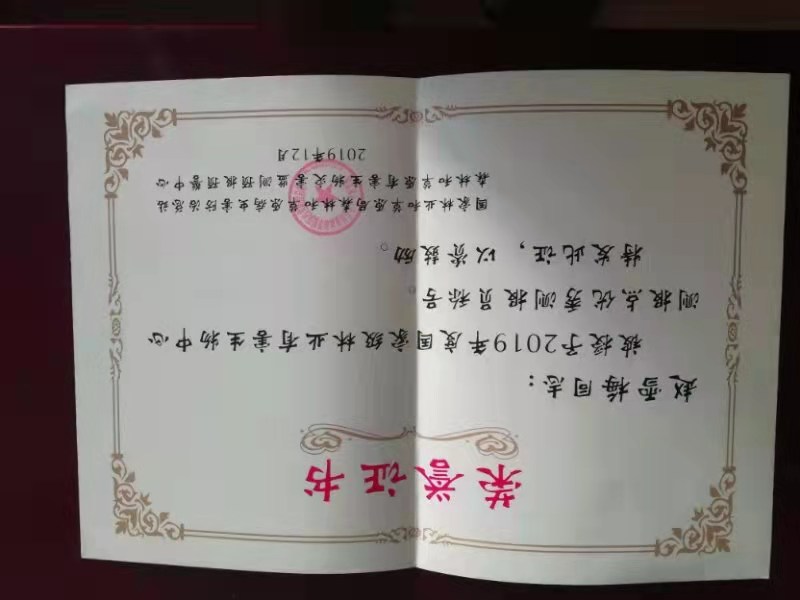 荣誉证书
赵雪梅同志：
被授予2019年度国家级林业有害生物中心
测报点优秀测报员称号。
特发此证，以资鼓励。
国家林业和草原局森林和草原病虫害防治总站
森林和草原有害生物灾害监测预报预警中心
2019年12月